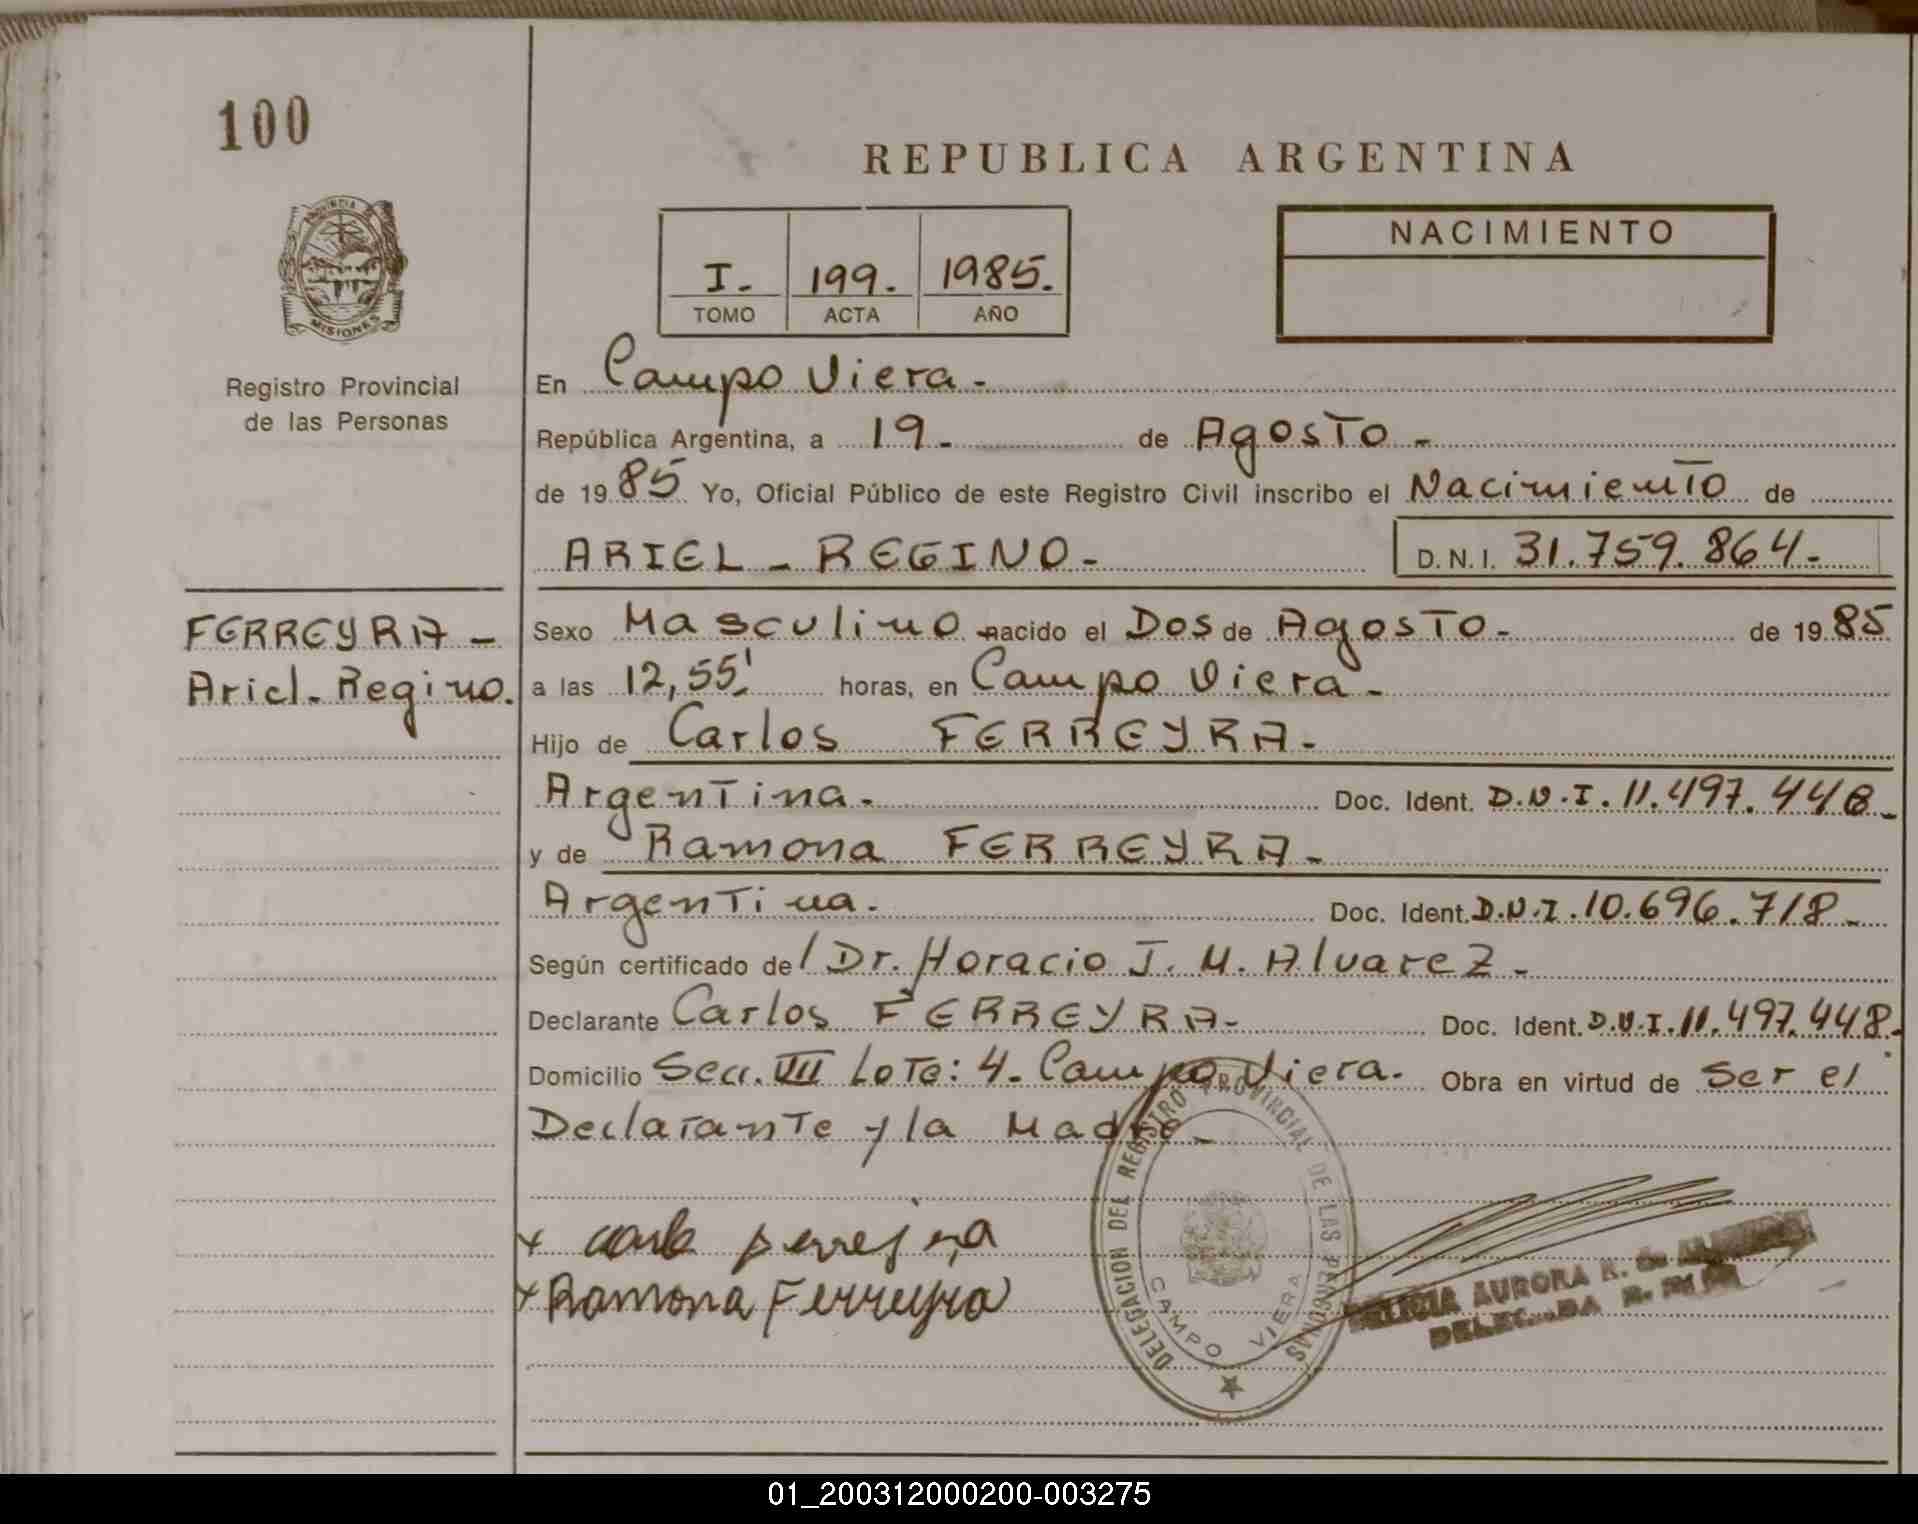 100
REPUBLICA ARGENTINA
NACIMIENTO
PROVINCIA
MISIONES
I. 199. 1985.
TOMO ACTA AÑO
Registro Provincial
de las Personas
En Campo Viera.-
República Argentina, a 19.- de Agosto.-
de 1985 Yo, Oficial Público de este Registro Civil inscribo el Nacimiento de
ARIEL - REGINO.- D.N.I. 31.759.864.-
FERREYRA -
Ariel - Regino.
Sexo Masculino nacido el Dos de Agosto.- de 1985
a las 12,55' horas, en Campo Viera.-
Hijo de Carlos FERREYRA.-
Argentina.- Doc. Ident. D.N.I. 11.497.448.-
y de Ramona FERREYRA.-
Argentina.- Doc. Ident. D.N.I. 10.696.718.-
Según certificado de / Dr. Horacio J. M. Alvarez.-
Declarante Carlos FERREYRA.- Doc. Ident. D.N.I. 11.497.448.-
Domicilio Secc. VII Lote: 4. Campo Viera.- Obra en virtud de Ser el
Declarante y la Madre.-
x
x Ramona Ferreyra
DELEGACION DEL REGISTRO PROVINCIAL DE LAS PERSONAS
CAMPO VIERA
AURORA
DELEGADA
01_200312000200-003275